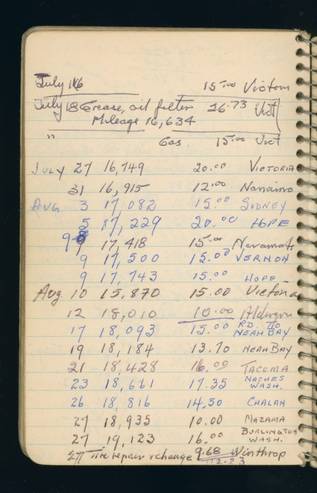 July 16 15.00 Victoria
July 18 Grease, oil filter 26.73 Vict
Mileage 16,634
" Gas 15.00 Vict
JULY 27 16,749 20.00 VICTORIA
31 16,915 12.00 Nanaimo
AUG 3 17,082 15.00 SIDNEY
5 17,229 20.00 HOPE
9 17,418 15.00 Naramata
9 17,500 15.00 VERNON
9 17,743 15.00 HOPE
Aug 10 15,870 15.00 Victoria
12 18,010 10.00
17 18,093 15.00 RD. TO NEAH BAY
19 18,184 13.70 NEAH BAY
21 18,428 16.00 TACOMA
23 18,661 17.35 NACHES WASH.
26 18,816 14.50 CHALAN
27 18,935 10.00 MAZAMA
27 19,123 16.00 BURLINGTON WASH.
27 Tire repair & change 9.68 Winthrop